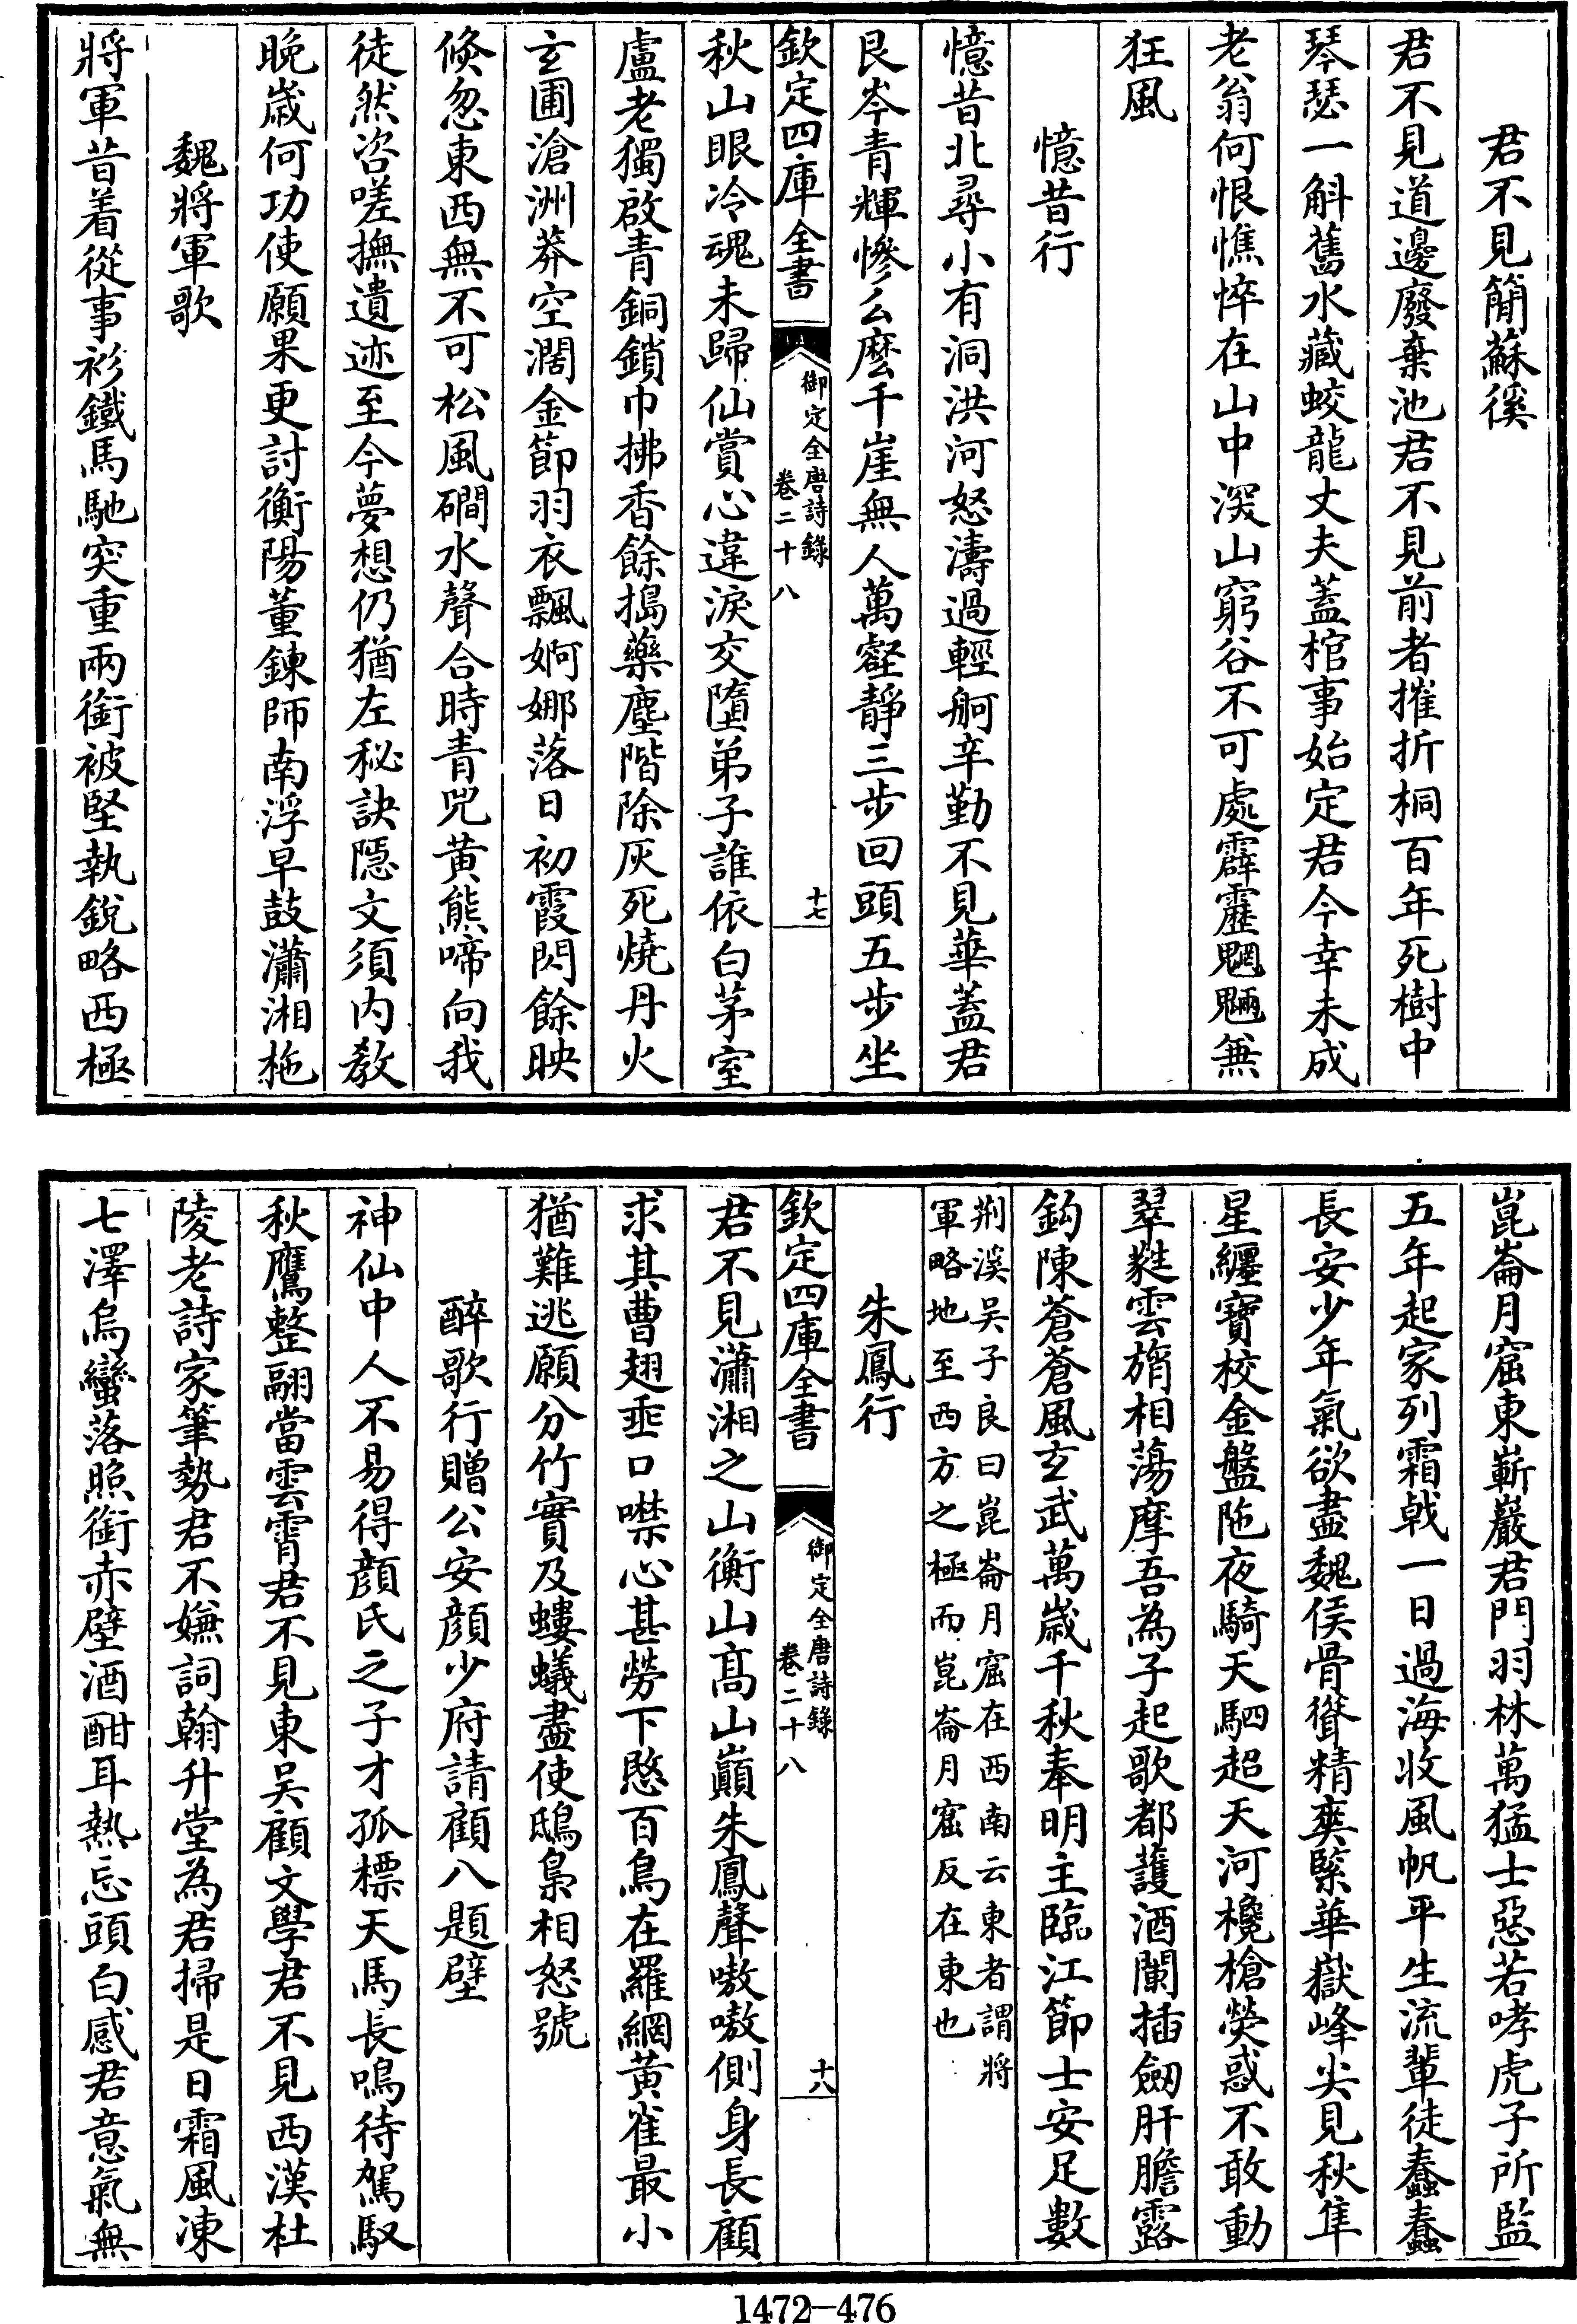 君不見簡蘇徯
君不見道邊廢棄池君不見前者摧折桐百年死樹中
琴瑟一斛舊水藏蛟龍丈夫蓋棺事始定君今幸未成
老翁何恨憔悴在山中深山窮谷不可處霹靂魍魎兼
狂風
憶昔行
憶昔北尋小有洞洪河怒濤過輕舸辛勤不見華蓋君
艮岑青輝慘么麽千崖無人萬壑靜三步回頭五步坐
欽定四庫全書
御定全唐詩錄
卷二十八
十七
秋山眼冷魂未歸仙賞心違淚交墮弟子誰依白茅室
盧老獨啟青銅鎖巾拂香餘搗藥塵階除灰死燒丹火
玄圃滄洲莽空濶金節羽衣飄婀娜落日初霞閃餘映
倏忽東西無不可松風磵水聲合時青兕黃熊啼向我
徒然咨嗟撫遺迹至今夢想仍猶左秘訣隱文須內教
晚歲何功使願果更討衡陽董鍊師南浮早鼓瀟湘柂
魏將軍歌
將軍昔着從事衫鐵馬馳突重兩銜被堅執銳略西極
崑崙月窟東嶄巖君門羽林萬猛士惡若哮虎子所監
五年起家列霜戟一日過海收風帆平生流輩徒蠢蠢
長安少年氣欲盡魏侯骨聳精爽緊華嶽峰尖見秋隼
星纏寶校金盤陁夜騎天駟超天河欃槍熒惑不敢動
翠蕤雲旓相蕩摩吾為子起歌都護酒闌插劒肝膽露
鈎陳蒼蒼風玄武萬歲千秋奉明主臨江節士安足數
荆溪吳子良曰崑崙月窟在西南云東者謂將
軍略地至西方之極而崑崙月窟反在東也
朱鳳行
欽定四庫全書
御定全唐詩錄
卷二十八
十八
君不見瀟湘之山衡山高山巔朱鳳聲嗷嗷側身長顧
求其曹翅垂口噤心甚勞下愍百鳥在羅網黃雀最小
猶難逃願分竹實及螻蟻盡使鴟梟相怒號
醉歌行贈公安顏少府請顧八題壁
神仙中人不易得顏氏之子才孤標天馬長鳴待駕馭
秋鷹整翮當雲霄君不見東吳顧文學君不見西漢杜
陵老詩家筆勢君不嫌詞翰升堂為君掃是日霜風凍
七澤烏蠻落照銜赤壁酒酣耳熱忘頭白感君意氣無
1472—476